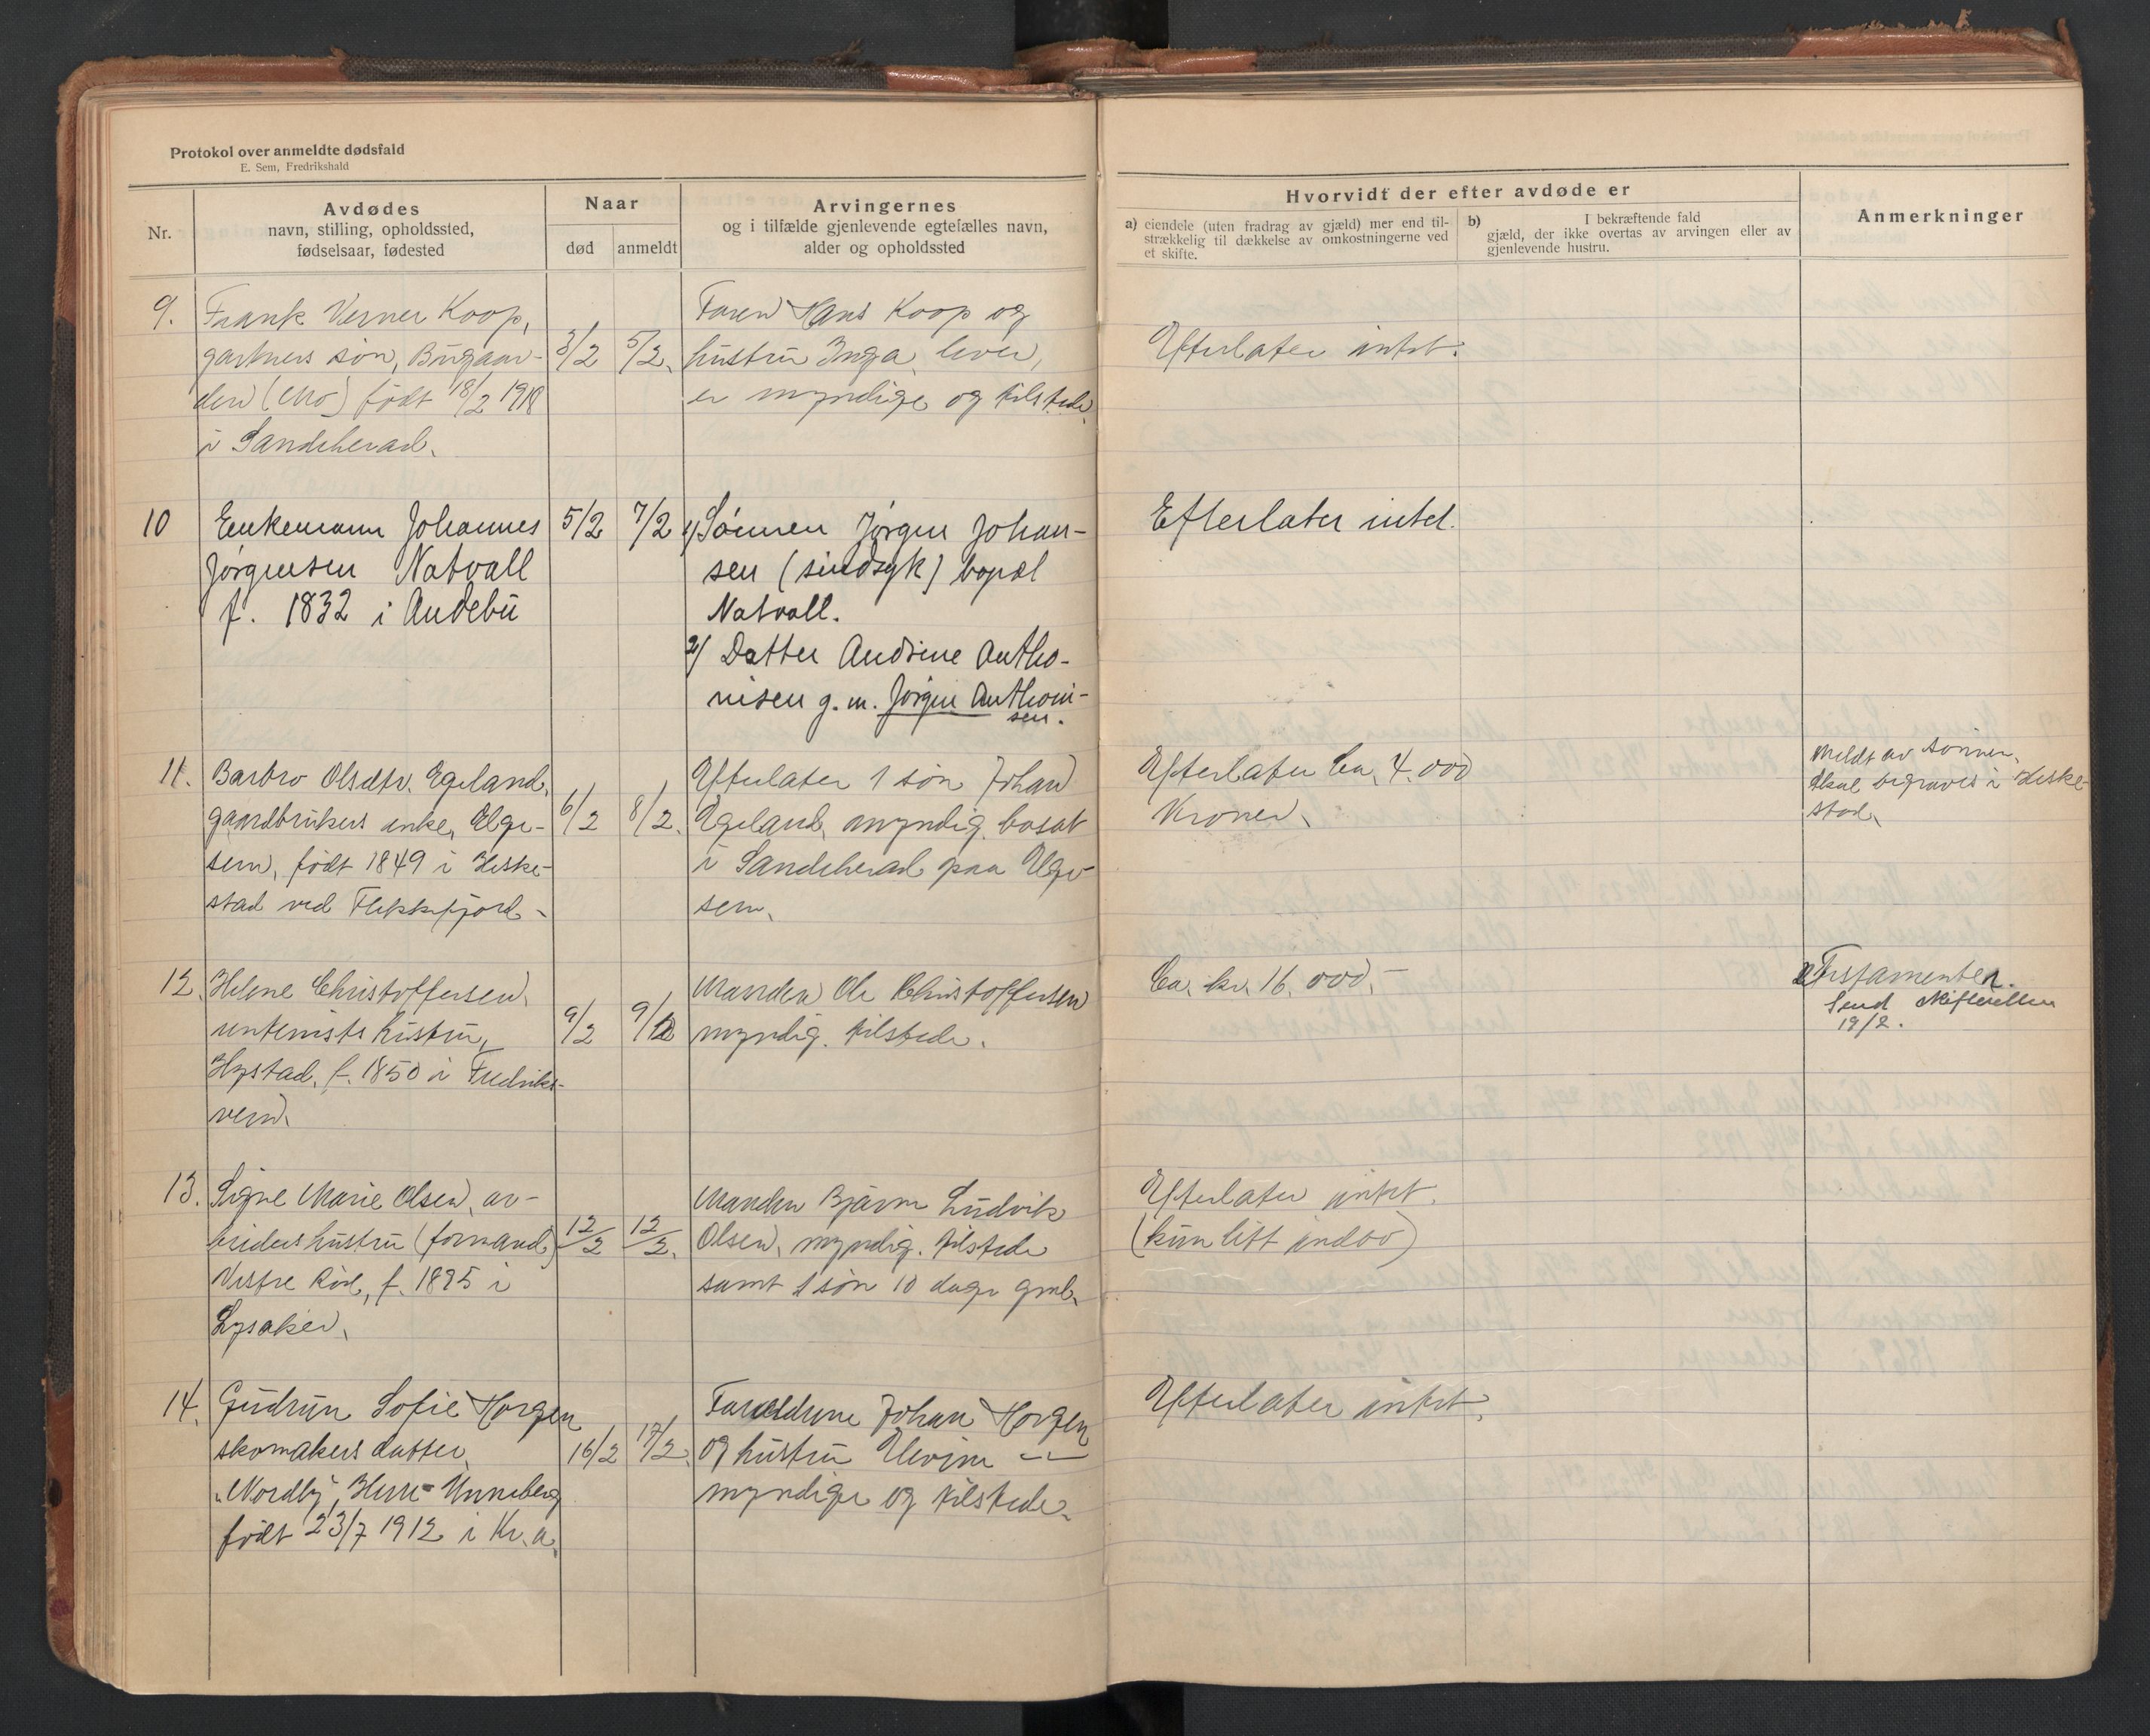 Protokol over anmeldte dødsfald
E. Sem, Fredrikshald
Nr.
Avdødes
navn, stilling, opholdssted,
fødselsaar, fødested
Naar
død
anmeldt
Arvingernes
og i tilfælde gjenlevende egtefælles navn,
alder og opholdssted
Hvorvidt der efter avdøde er
a) eiendele (uten fradrag av gjæld) mer end til-
strækkelig til dækkelse av omkostningerne ved
et skifte.
b) I bekræftende fald
gjæld, der ikke overtas av arvingen eller av
gjenlevende hustru.
Anmerkninger
9.
Frank Verner Koop,
gartners søn, Bugaar-
den (Mo) født 18/2 1918
i Sandeherad.
3/2
5/2.
Faren Hans Koop og
hustru Inga lever,
er myndige og tilstede.
Efterlater intet.
10
Enkemann Johannes
Jørgensen Natvall
f. 1832 i Andebu
5/2
7/2
1/ Sønnen Jørgen Johan-
sen (sindsyk) bopæl
Natvall.
2/ Datter Andrine Antho-
nisen g. m. Jørgen Anthoni-
sen.
Efterlater intet.
11.
Barbro Olsdtr. Egeland,
gaardbrukers enke, Elge-
sem, født 1849 i Heske-
stad ved Flekkefjord.
6/2
8/2.
Efterlater 1 søn Johan
Egeland, myndig, bosat
i Sandeherad paa Elge-
sem.
Efterlater Ca. 4.000
Kroner.
Meldt av sønnen.
Skal begraves i Heske-
stad.
12.
Helene Christoffersen,
rentenists hustru,
Hystad, f. 1850 i Fredriks-
vern.
9/2
9/2
Manden Ole Christoffersen
myndig. tilstede.
Ca. kr. 16.000.-
Testamenter.
Send Skifteretten
19/2.
13.
Signe Marie Olsen, ar-
beiders hustru (formand)
Vestre Rød, f. 1895 i
Lysaker.
12/2
12/2.
Manden Bjarne Ludvik
Olsen, myndig. tilstede
samt 1 søn 10 dage gml.
Efterlater intet.
(kun litt indbo)
14.
Gudrun Sofie Horgen
skomakers datter,
"Nordby", Herre-Unneberg
født 23/7 1912 i Kr.a.
16/2
17/2.
Forældrene Johan Horgen
og hustru Elevine -"-
myndige og tilstede.
Efterlater intet.